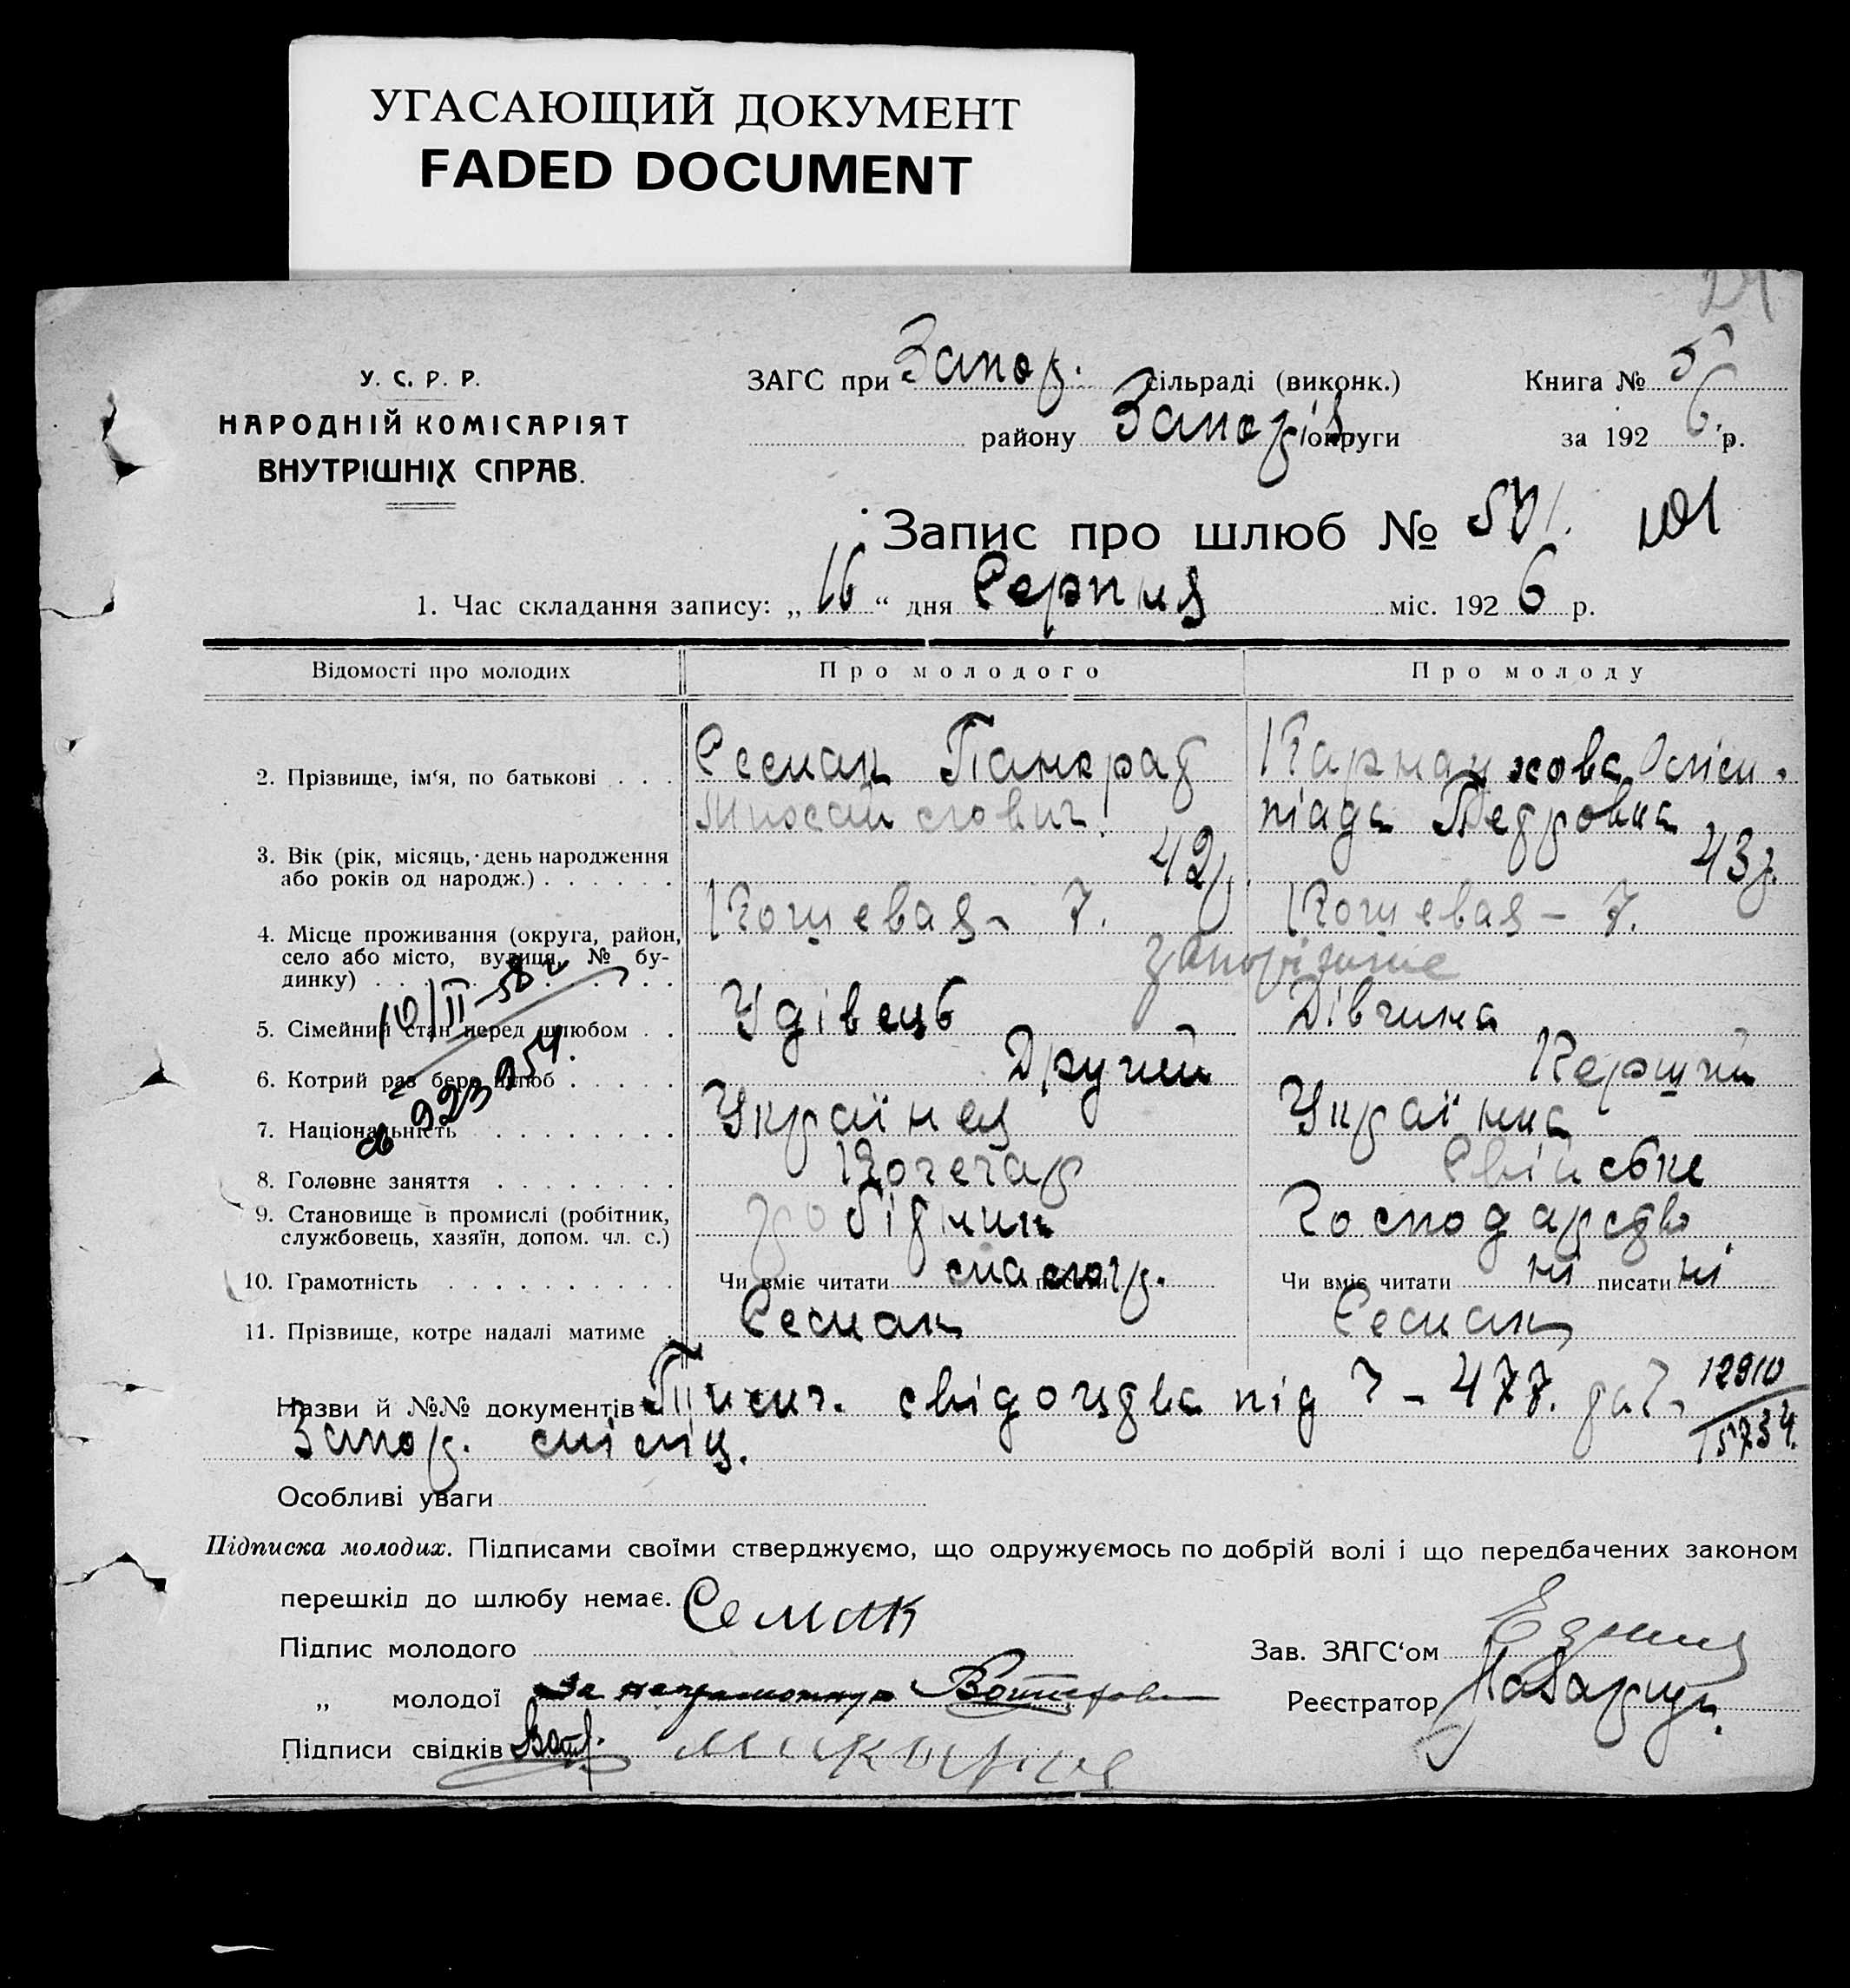 УГАСАЮЩИЙ ДОКУМЕНТ
FADED DOCUMENT
У. С. Р. Р.
НАРОДНІЙ КОМІСАРІЯТ
ВНУТРІШНІХ СПРАВ.
ЗАГС при Запор. сільраді (виконк.)
району Запоріз. округи
Книга № 5
за 1926 р.
Запис про шлюб №
101
1. Час складання запису: „16“ дня Серпня міс. 1926 р.
Відомості про молодих
Про молодого
Про молоду
2. Прізвище, ім‘я, по батькові . . .
Семак Панкрат
Карнаухова Олім-
піада Петровна
3. Вік (рік, місяць, день народження
або років од народж.) . . . . . .
42р.
43р.
4. Місце проживання (округа, район,
село або місто, вулиця, № бу-
динку) . . . . . . . . . . .
Кошевая - 7.
Кошевая - 7.
Запоріжжє
5. Сімейний стан перед шлюбом . .
Удівець
Дівчина
6. Котрий раз бере шлюб . . . . .
Другий
Перший
7. Національність . . . . . . . .
Українец
Українка
8. Головне заняття . . . . . . . .
Кочегар
Свійське
9. Становище в промислі (робітник,
службовець, хазяїн, допом. чл. с.)
робітник
Господарство
10. Грамотність . . . . . . . . . .
Чи вміє читати малогр. писати
Чи вміє читати ні писати ні
11. Прізвище, котре надалі матиме .
Семак
Семак
10/II-58г
923954.
Назви й №№ документів свідоцтва під № - 477.
12910
15734.
Запор. міліц.
Особливі уваги
Підписка молодих. Підписами своїми стверджуємо, що одружуємось по добрій волі і що передбачених законом
перешкід до шлюбу немає.
Підпис молодого Семак
Зав. ЗАГС‘ом
„ молодої За неграмотную
Реєстратор
Підписи свідків